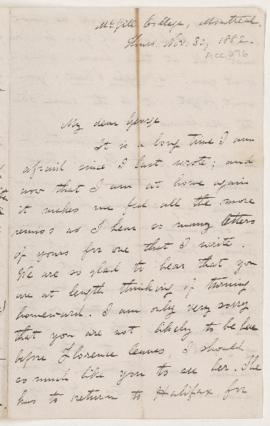 McGill College, Montreal.
Thurs. Nov. 1882.
My dear George
It is a long time I am
afraid since I last wrote; and
now that I am at home again
it makes me feel all the more
remiss as I hear so many letters
of yours for one that I write.
We are so glad to hear that you
are at length thinking of turning
homeward. I am only very sorry
that you are not likely to be here
before Florence leaves, I should
so much like you to see her. She
has to return to Halifax for